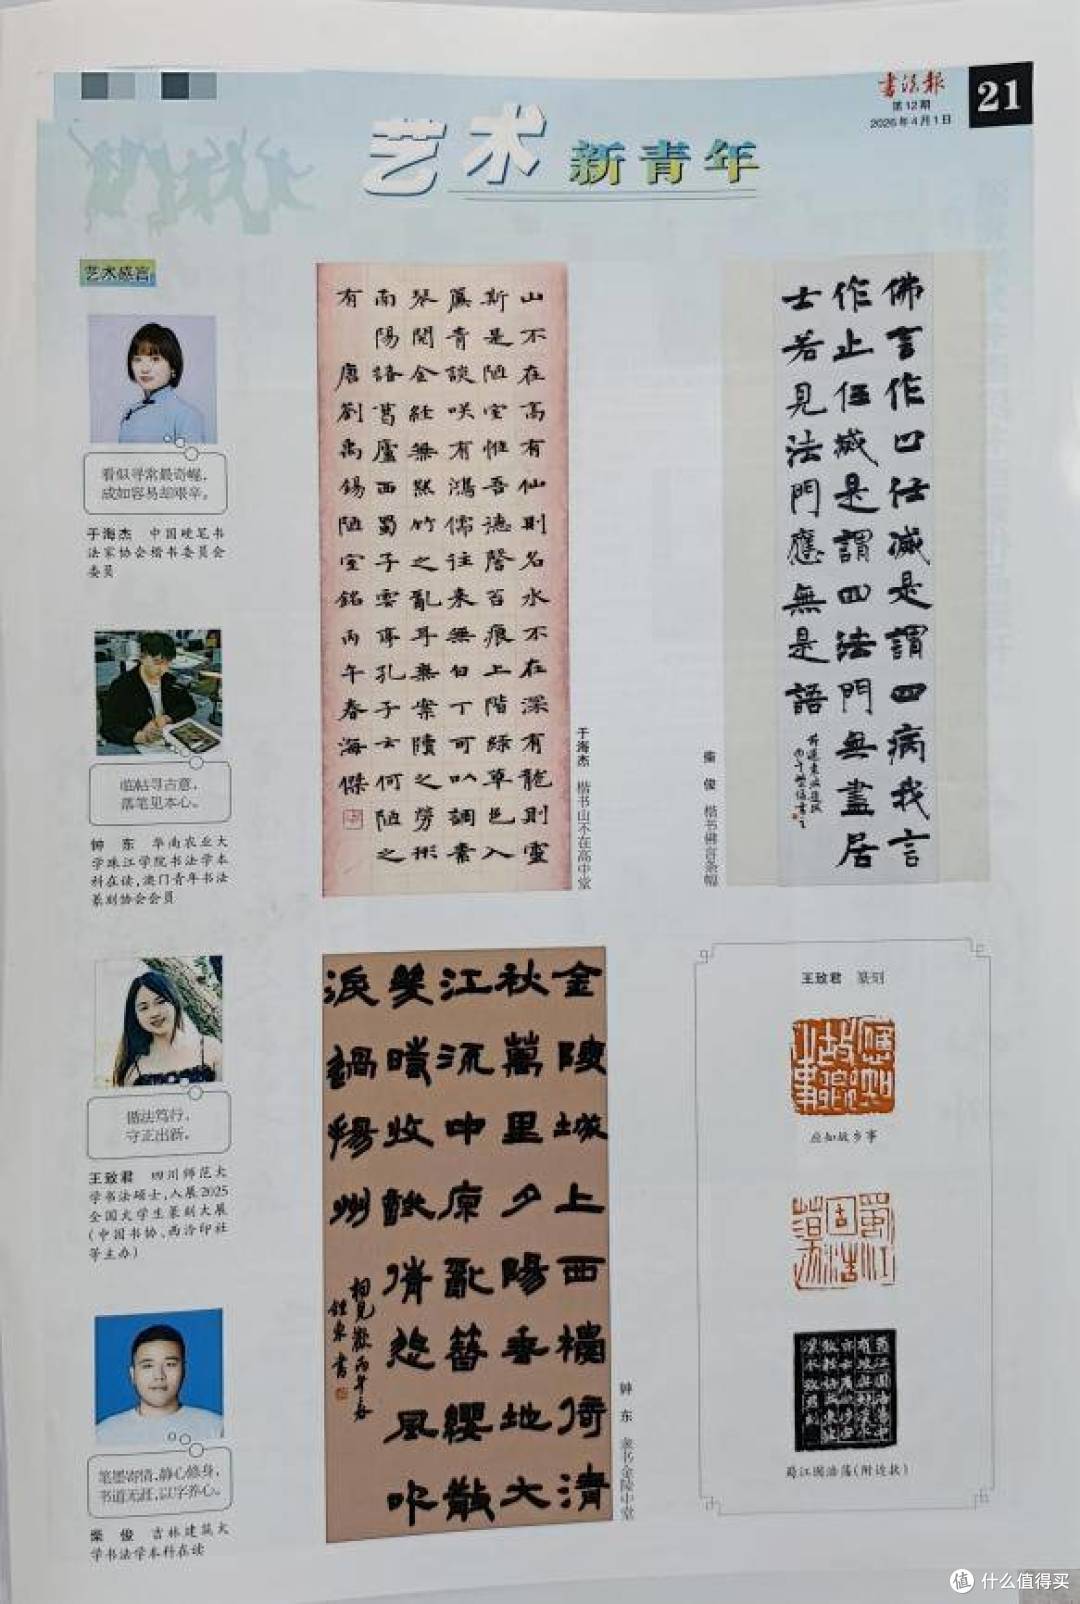 书法报
第12期
2026年4月1日
21
艺术新青年
艺术感言
看似寻常最奇崛，
成如容易却艰辛。
于海杰 中国硬笔书
法家协会楷书委员会
委员
临帖寻古意，
落笔见本心。
钟 东 华南农业大
学珠江学院书法学本
科在读，澳门青年书法
篆刻协会会员
循法笃行，
守正出新。
王致君 四川师范大
学书法硕士，入展2025
全国大学生篆刻大展
（中国书协、西泠印社
等主办）
笔墨寄情，静心修身，
书道无涯，以字养心。
柴 俊 吉林建筑大
学书法学本科在读
山不在高有仙則名水不在深有龍則靈
斯是陋室惟吾德馨苔痕上階綠草色入
簾青談咲有鴻儒往来無白丁可以調素
琴閱金經無絲竹之亂耳無案牘之勞形
南陽諸葛廬西蜀子雲亭孔子云何陋之
有 唐劉禹錫陋室銘丙午春海傑
于海杰 楷书山不在高中堂
佛言作四任滅是謂四病我言
作止任滅是謂四法門無盡居
士若見法門應無是語
柴 俊 楷书佛言条幅
金陵城上西樓倚清
秋萬里夕陽垂地大
江流中原亂簪纓散
幾時收試倩悲風吹
淚過揚州
相見歡丙午春
鍾東書
钟 东 隶书金陵中堂
王致君 篆刻
應知故鄉事
应知故乡事
蜀江固浩蕩
蜀江固浩荡（附边款）
值 什么值得买